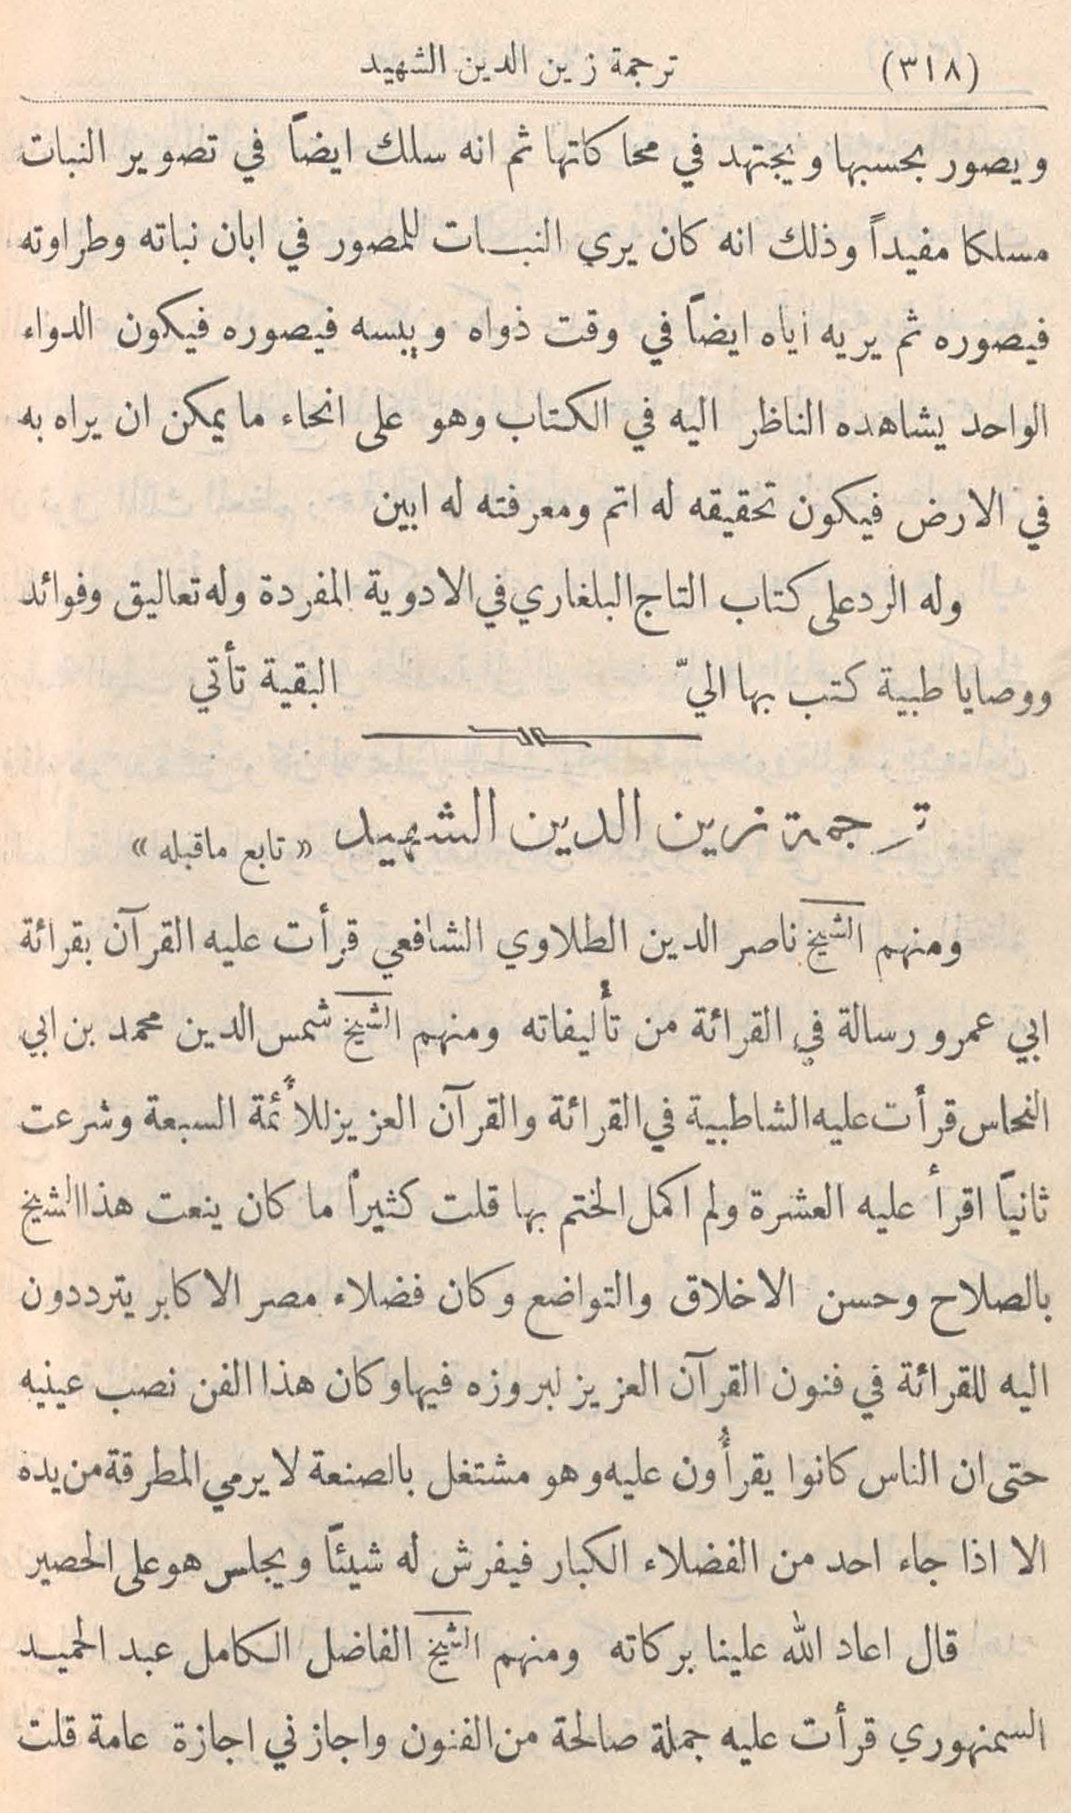 (٣١٨) ترجمة زين الدين الشهيد
ويصور بحسبها ويجتهد في محاكاتها ثم انه سلك ايضاً في تصوير النبات
مسلكا مفيداً وذلك انه كان يري النبــات للمصور في ابان نباته وطراوته
فيصوره ثم يريه اياه ايضاً في وقت ذواه ويبسه فيصوره فيكون الدواء
الواحد يشاهده الناظر اليه في الكتاب وهو على انحاء ما يمكن ان يراه به
في الارض فيكون تحقيقه له اتم ومعرفته له ابين
وله الرد على كتاب التاج البلغاري في الادوية المفردة وله تعاليق وفوائد
ووصايا طبية كتب بها اليّ البقية تأتي
ترجمة زين الدين الشهيد « تابع ماقبله »
ومنهم الشيخ ناصر الدين الطلاوي الشافعي قرأت عليه القرآن بقرائة
ابي عمرو رسالة في القرائة من تأليفاته ومنهم الشيخ شمس الدين محمد بن ابي
النحاس قرأت عليه الشاطبية في القرائة والقرآن العزيز للأئمة السبعة وشرعت
ثانياً اقرأ عليه العشرة ولم اكمل الختم بها قلت كثيراً ما كان ينعت هذا الشيخ
بالصلاح وحسن الاخلاق والتواضع وكان فضلاء مصر الاكابر يترددون
اليه للقرائة في فنون القرآن العزيز لبروزه فيها وكان هذا الفن نصب عينيه
حتى ان الناس كانوا يقرأون عليه وهو مشتغل بالصنعة لا يرمي المطرقة من يده
الا اذا جاء احد من الفضلاء الكبار فيفرش له شيئاً ويجلس هو على الحصير
قال اعاد الله علينا بركاته ومنهم الشيخ الفاضل الكامل عبد الحميــد
السمنهوري قرأت عليه جملة صالحة من الفنون واجازني اجازة عامة قلت